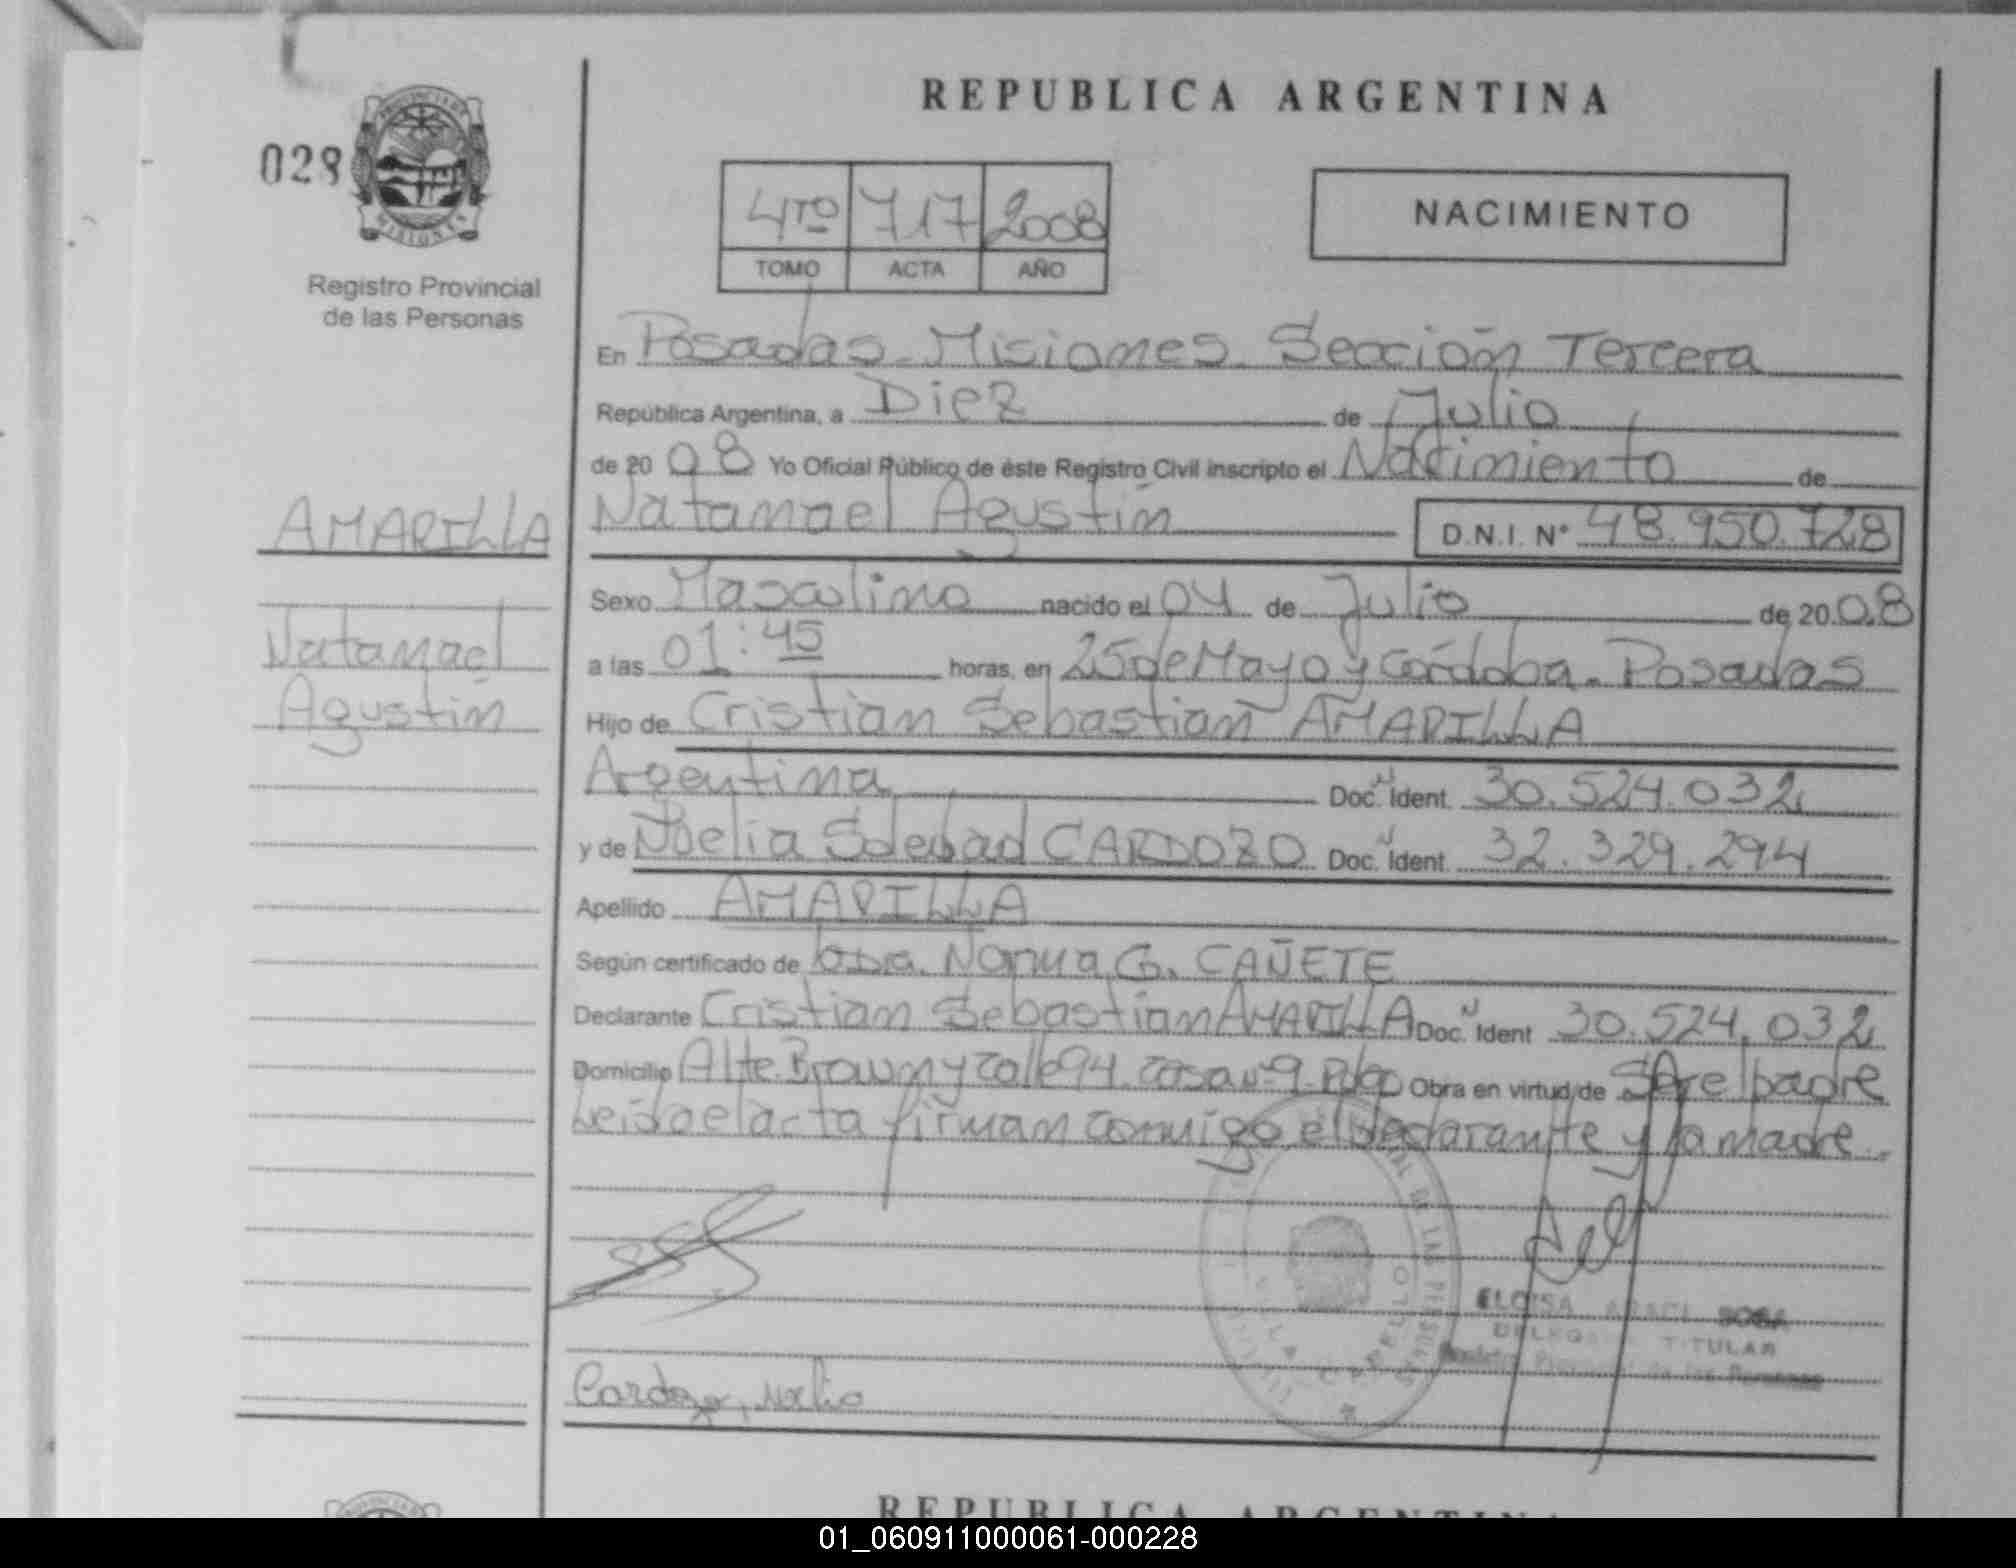 REPUBLICA ARGENTINA
028
PROVINCIA DE
MISIONES
Registro Provincial
de las Personas
4TO 717 2008
TOMO ACTA AÑO
NACIMIENTO
En Posadas - Misiones - Sección Tercera
República Argentina, a Diez de Julio
de 20 08 Yo Oficial Público de éste Registro Civil inscripto el Nacimiento de
AMARILLA
Natanael Agustín
D.N.I. N° 48.950.728
Sexo Masculino nacido el 04 de Julio de 20 08
Natanael
Agustín
a las 01:45 horas, en 25 de Mayo y Córdoba - Posadas
Hijo de Cristian Sebastian AMARILLA
Argentina Doc. Ident. 30.524.032
y de Noelia Soledad CARDOZO Doc. Ident. 32.329.294
Apellido AMARILLA
Según certificado de Norma G. CAÑETE
Declarante Cristian Sebastian AMARILLA Doc. Ident 30.524.032
Domicilio Alte. Brown y calle 94 casa N° 9 - Obra en virtud de Ser el padre
Leida el acta firman conmigo el declarante y la madre.
ELOISA ARACI SOSA
DELEGADA TITULAR
Registro Provincial de las Personas
VILLA CABELLO
Cardozo, Noelia
REPUBLICA ARGENTINA
01_060911000061-000228